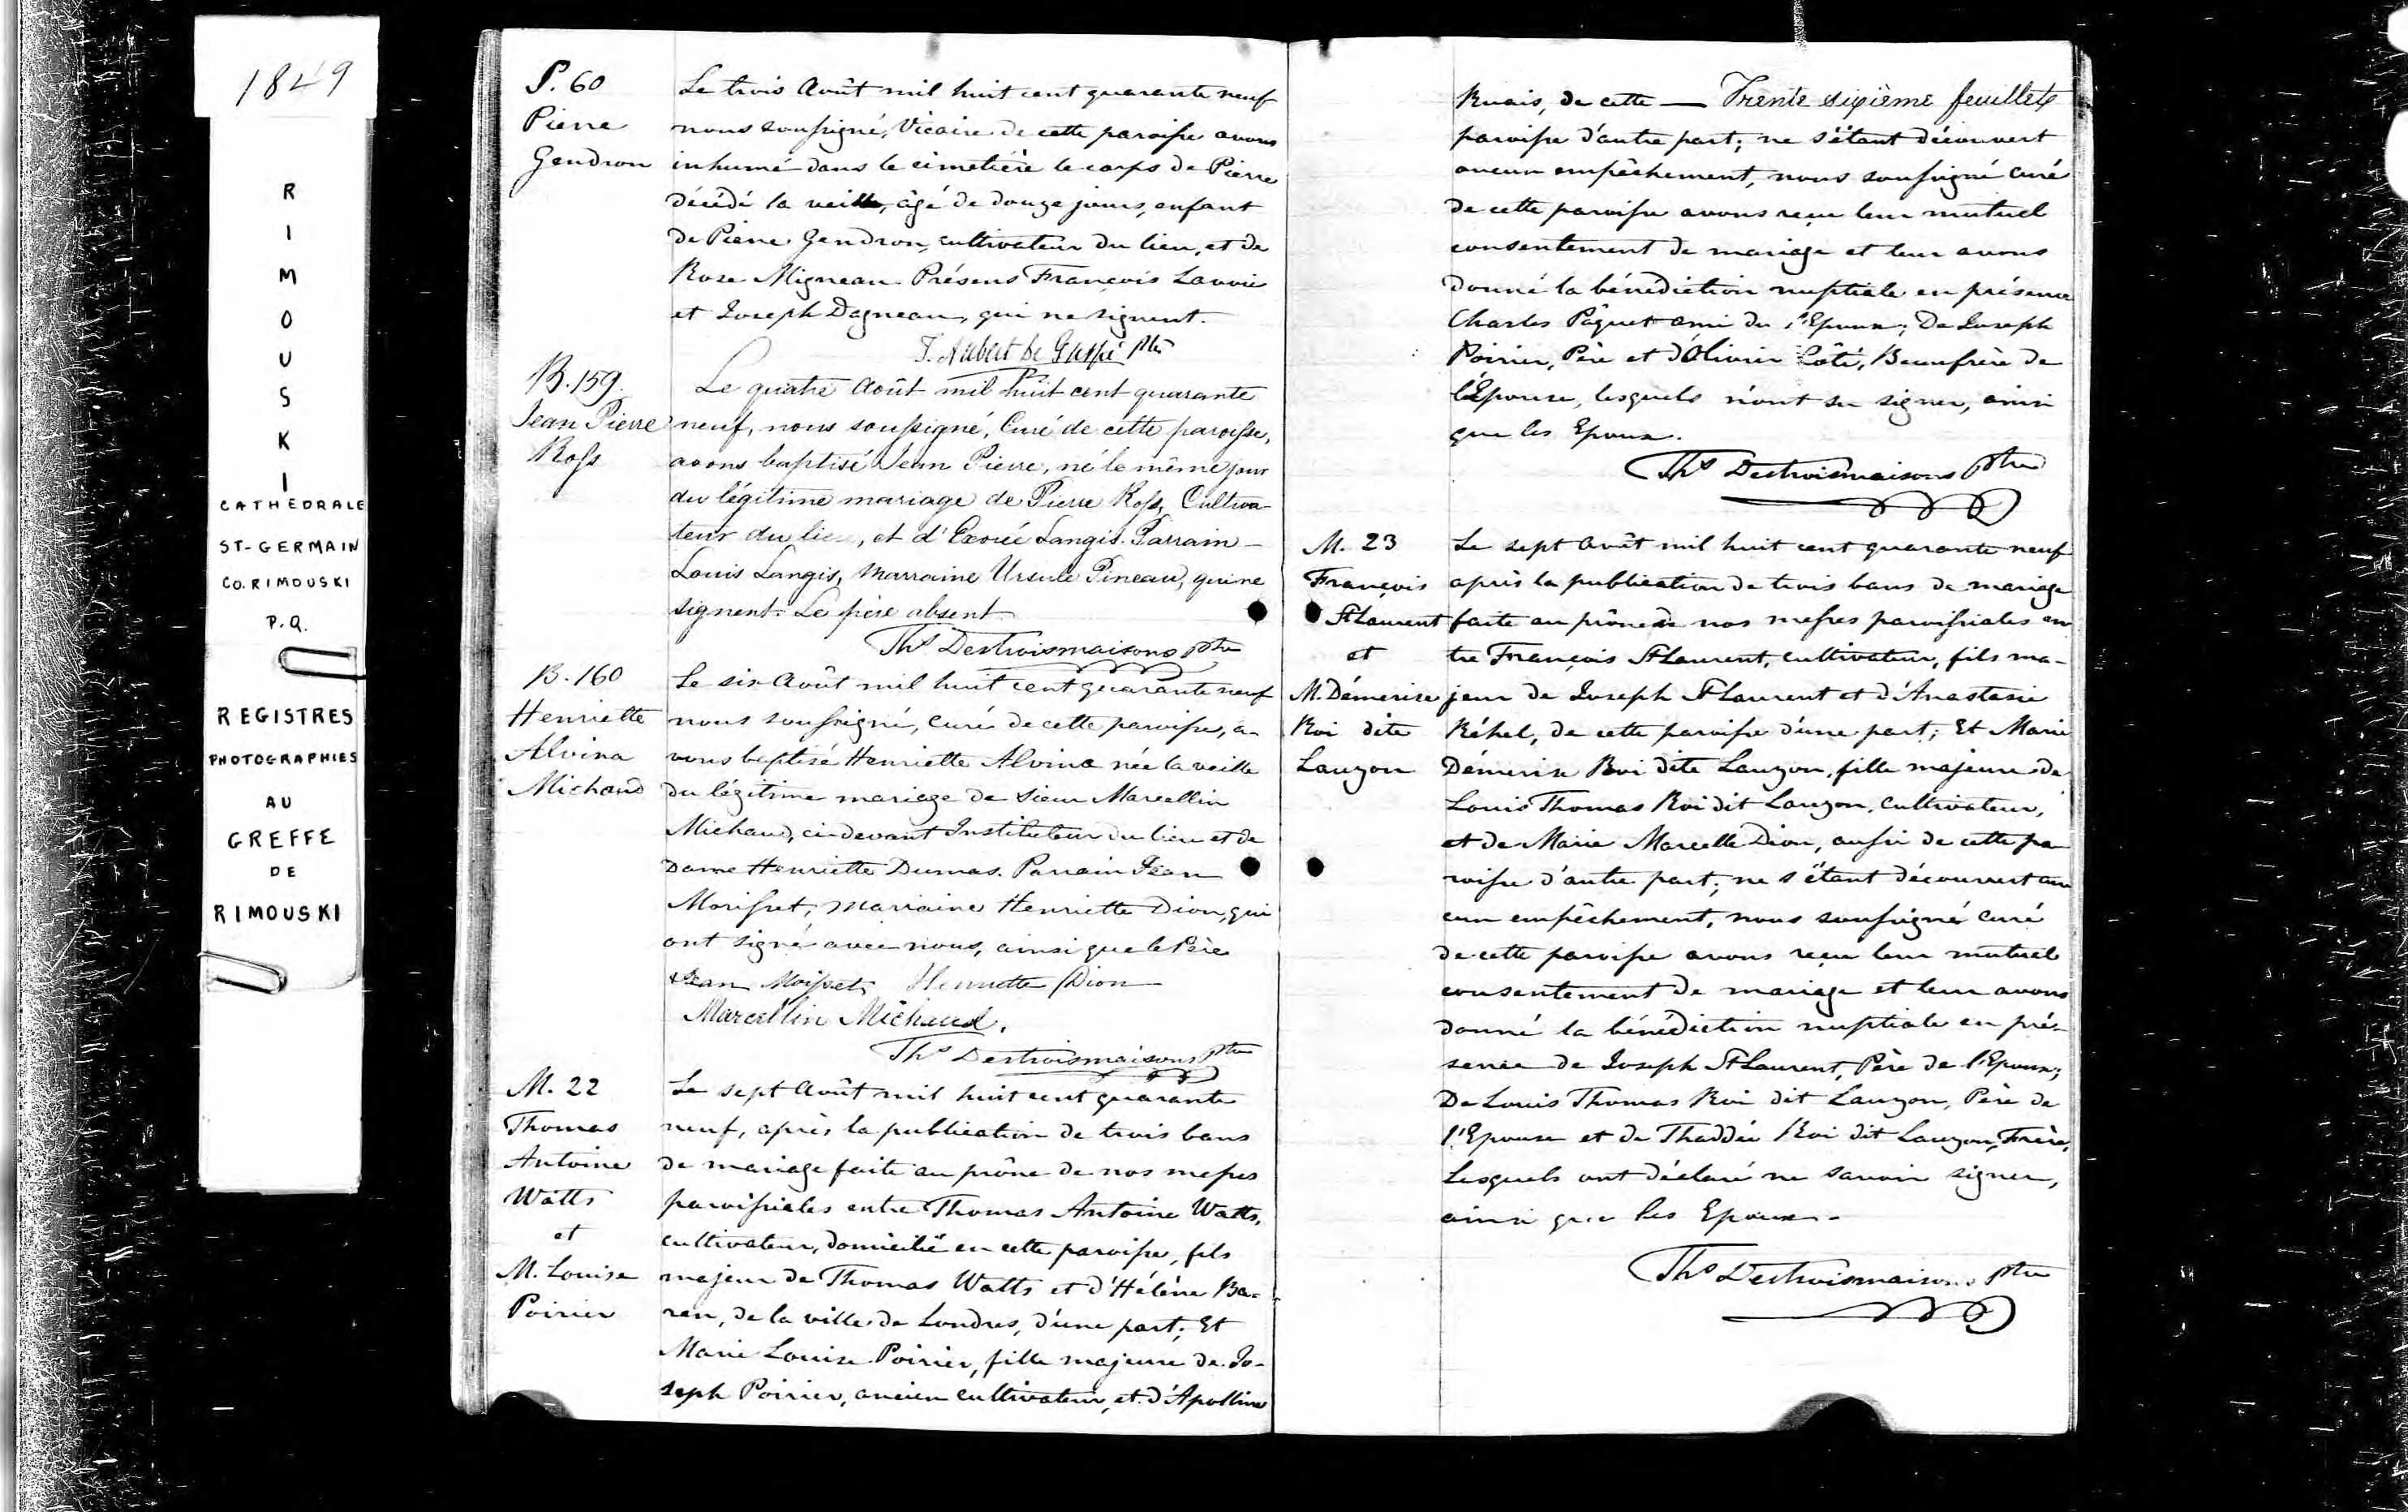 1849
R
I
M
O
U
S
K
I
CATHÉDRALE
ST-GERMAIN
CO. RIMOUSKI
P.Q.
REGISTRES
PHOTOGRAPHIES
AU
GREFFE
DE
RIMOUSKI
S. 60
Pierre
Gendron
Le trois Août mil huit cent quarante neuf
nous soussigné, Vicaire de cette paroisse avons
inhumé dans le cimetière le corps de Pierre
décédé la veille, âgé de douze jours, enfant
de Pierre Gendron, cultivateur du lieu, et de
Rose Migneau. Présens François Lavoie
et Joseph Dagneau, qui ne signent.
T. Aubert de Gaspé ptre
B. 159.
Jean Pierre
Ross
Le quatre Août mil huit cent quarante
neuf, nous soussigné, Curé de cette paroisse,
avons baptisé Jean Pierre, né le même jour
du légitime mariage de Pierre Ross, Cultiva-
teur du lieu, et d'Exorée Langis. Parrain
Louis Langis, Marraine Ursule Pineau, qui ne
signent. Le père absent
Ths Destroismaisons ptre
B. 160
Henriette
Alvina
Michaud
Le six Août mil huit cent quarante neuf
nous soussigné, curé de cette paroisse, a-
vons baptisé Henriette Alvina née la veille
du légitime mariage de Sieur Marcellin
Michaud, ci-devant Instituteur du lieu et de
Dame Henriette Dumas. Parrain Jean
Morisset, Marraine Henriette Dion, qui
ont signé avec nous, ainsi que le Père
Jean Morisset Henriette Dion
Marcellin Michaud.
Ths Destroismaisons ptre
M. 22
Thomas
Antoine
Watts
et
M. Louise
Poirier
Le sept Août mil huit cent quarante
neuf, après la publication de trois bans
de mariage faite au prône de nos messes
paroissiales entre Thomas Antoine Watts,
cultivateur, domicilié en cette paroisse, fils
majeur de Thomas Watts et d'Hélène Ba-
ren, de la ville de Londres, d'une part; Et
Marie Louise Poirier, fille majeure de Jo-
seph Poirier, ancien cultivateur, et d'Apolline
Ruais, de cette — Trente sixième feuillet
paroisse d'autre part; ne s'étant découvert
aucun empêchement, nous soussigné curé
de cette paroisse avons reçu leur mutuel
consentement de mariage et leur avons
donné la bénédiction nuptiale en présence
Charles Pâquet ami de l'Epoux; De Joseph
Poirier, Père et d'Olivier Côté, Beaufrère de
l'Epouse, lesquels n'ont su signer, ainsi
que les Epoux.
Ths Destroismaisons ptre
M. 23
François
St Laurent
et
M. Démerise
Roi dite
Lauzon
Le sept Août mil huit cent quarante neuf
après la publication de trois bans de mariage
faite au prône de nos messes paroissiales en-
tre François St Laurent, cultivateur, fils ma-
jeur de Joseph St Laurent et d'Anastasie
Réhel, de cette paroisse d'une part; Et Marie
Démerise Roi dite Lauzon, fille majeure de
Louis Thomas Roi dit Lauzon, cultivateur,
et de Marie Marcelle Dion, aussi de cette pa
roisse d'autre part; ne s'étant découvert au
cun empêchement, nous soussigné curé
de cette paroisse avons reçu leur mutuel
consentement de mariage et leur avons
donné la bénédiction nuptiale en pré-
sence de Joseph St Laurent, Père de l'Epoux;
De Louis Thomas Roi dit Lauzon, Père de
l'Epouse et de Thaddée Roi dit Lauzon, Frère,
Lesquels ont déclaré ne savoir signer,
ainsi que les Epoux.
Ths Destroismaisons ptre